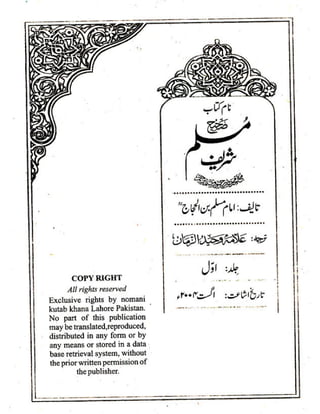 نام کتاب
صحیح
مسلم
شریف
تالیف: امام مسلم بن الحجاجؒ
ترجمہ: علامہ وحید الزماں
جلد: اوّل
تاریخ اشاعت: اگست ۲۰۰۴ء
COPY RIGHT
All rights reserved
Exclusive rights by nomani
kutab khana Lahore Pakistan.
No part of this publication
may be translated,reproduced,
distributed in any form or by
any means or stored in a data
base retrieval system, without
the prior written permission of
the publisher.